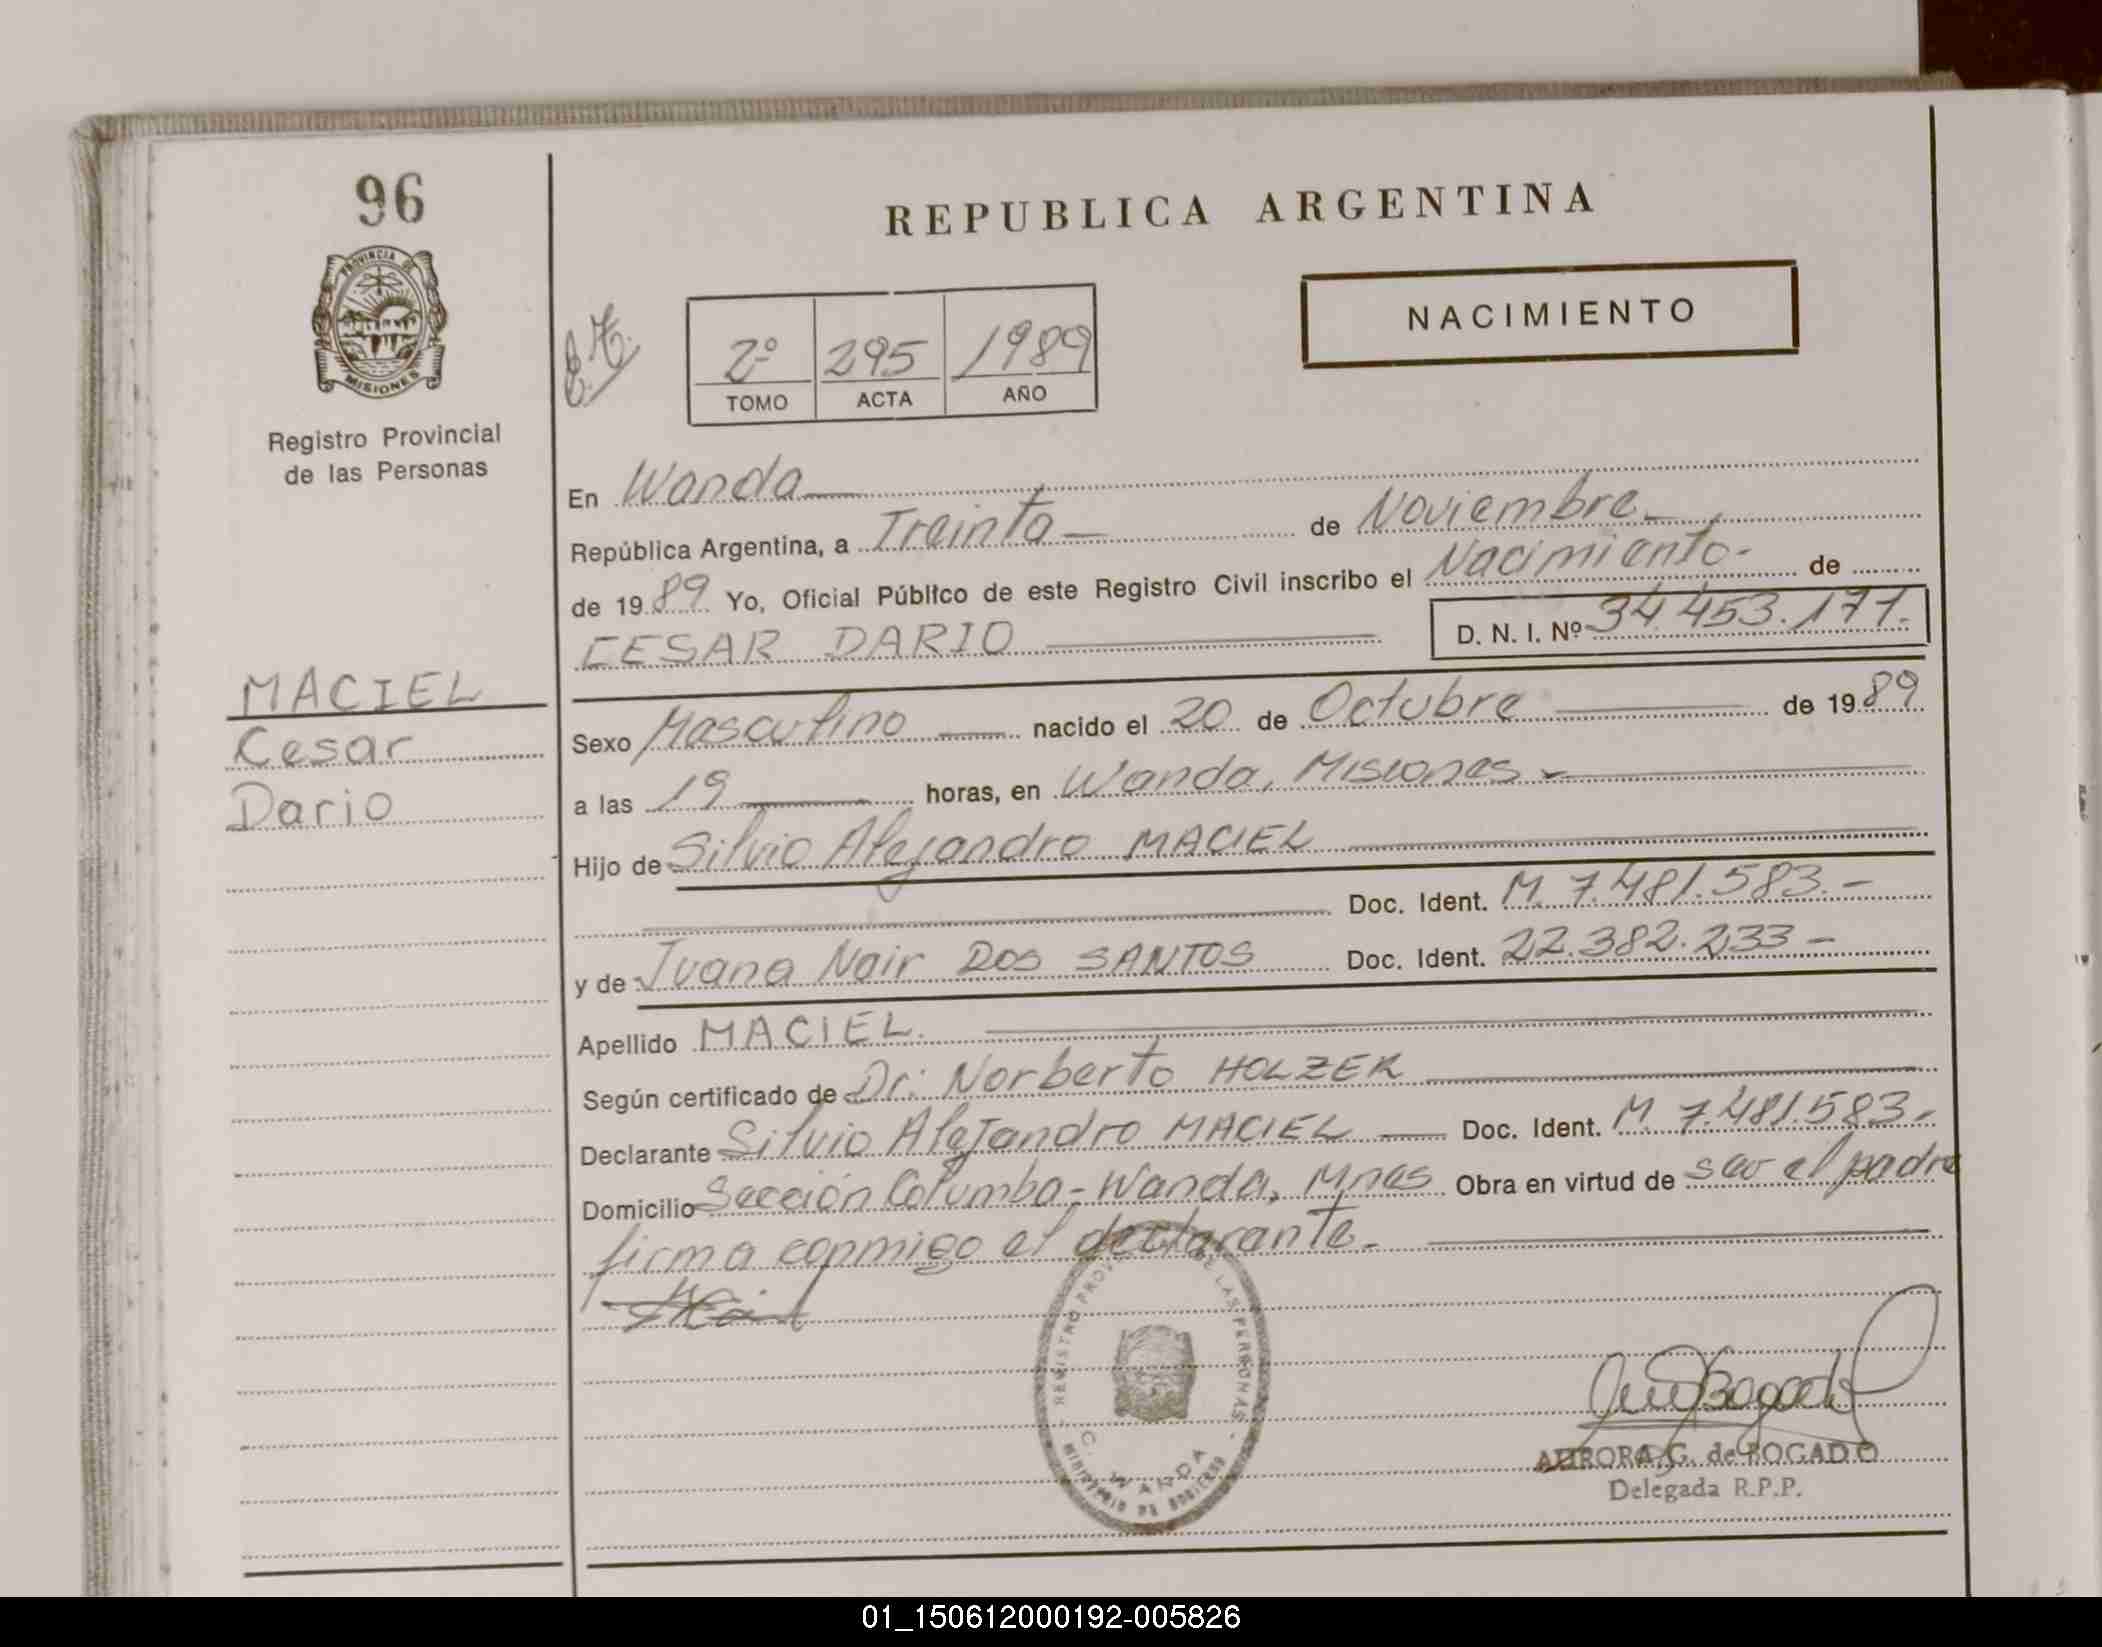 96
PROVINCIA DE
MISIONES
Registro Provincial
de las Personas
MACIEL
Cesar
Dario
REPUBLICA ARGENTINA
NACIMIENTO
2º 295 1989
TOMO ACTA AÑO
En Wanda
República Argentina, a Treinta de Noviembre
de 1989 Yo, Oficial Público de este Registro Civil inscribo el Nacimiento de
CESAR DARIO D. N. I. Nº 34.453.177.
Sexo Masculino nacido el 20 de Octubre de 1989
a las 19 horas, en Wanda, Misiones
Hijo de Silvio Alejandro MACIEL
Doc. Ident. M. 7.481.583.-
y de Juana Nair DOS SANTOS Doc. Ident. 22.382.233-
Apellido MACIEL.
Según certificado de Dr: Norberto HOLZER
Declarante Silvio Alejandro MACIEL Doc. Ident. M. 7.481.583-
Domicilio Sección Columba-Wanda, Mnes Obra en virtud de ser el padre
firma conmigo el declarante.
REGISTRO PROV DE LAS PERSONAS
WANDA
MINISTERIO DE GOBIERNO
AURORA G. de BOGADO
Delegada R.P.P.
01_150612000192-005826